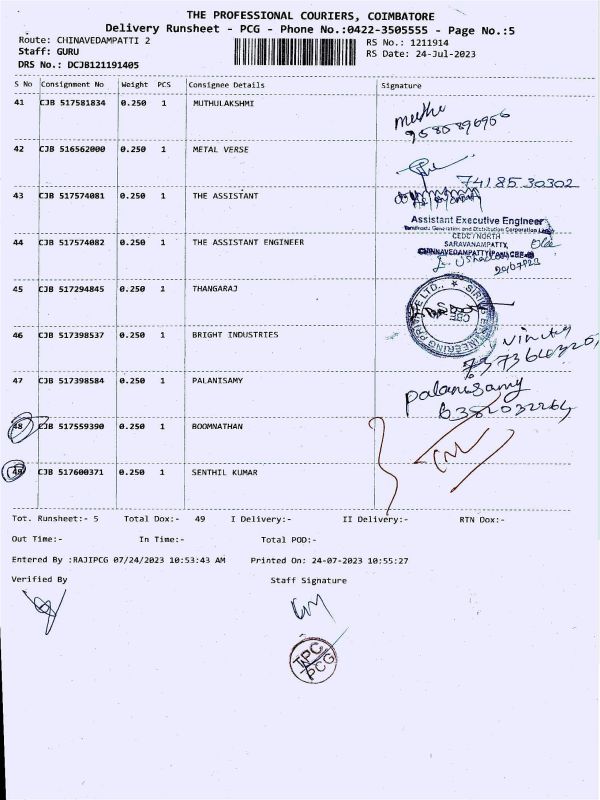 THE PROFESSIONAL COURIERS, COIMBATORE
Delivery Runsheet - PCG - Phone No.:0422-3505555 - Page No.:5
Route: CHINAVEDAMPATTI 2 RS No.: 1211914
Staff: GURU RS Date: 24-Jul-2023
DRS No.: DCJB121191405
S No Consignment No Weight PCS Consignee Details Signature
41 CJB 517581834 0.250 1 MUTHULAKSHMI
42 CJB 516562000 0.250 1 METAL VERSE
7418530302
43 CJB 517574081 0.250 1 THE ASSISTANT
Assistant Executive Engineer
Tamilnadu Generation and Distribution Corporation
CEDC / NORTH
44 CJB 517574082 0.250 1 THE ASSISTANT ENGINEER
SARAVANAMPATTY,
45 CJB 517294845 0.250 1 THANGARAJ
46 CJB 517398537 0.250 1 BRIGHT INDUSTRIES
47 CJB 517398584 0.250 1 PALANISAMY
palanisamy
48 CJB 517559390 0.250 1 BOOMNATHAN
49 CJB 517600371 0.250 1 SENTHIL KUMAR
Tot. Runsheet:- 5 Total Dox:- 49 I Delivery:- II Delivery:- RTN Dox:-
Out Time:- In Time:- Total POD:-
Entered By :RAJIPCG 07/24/2023 10:53:43 AM Printed On: 24-07-2023 10:55:27
Verified By Staff Signature
TPC
PCG